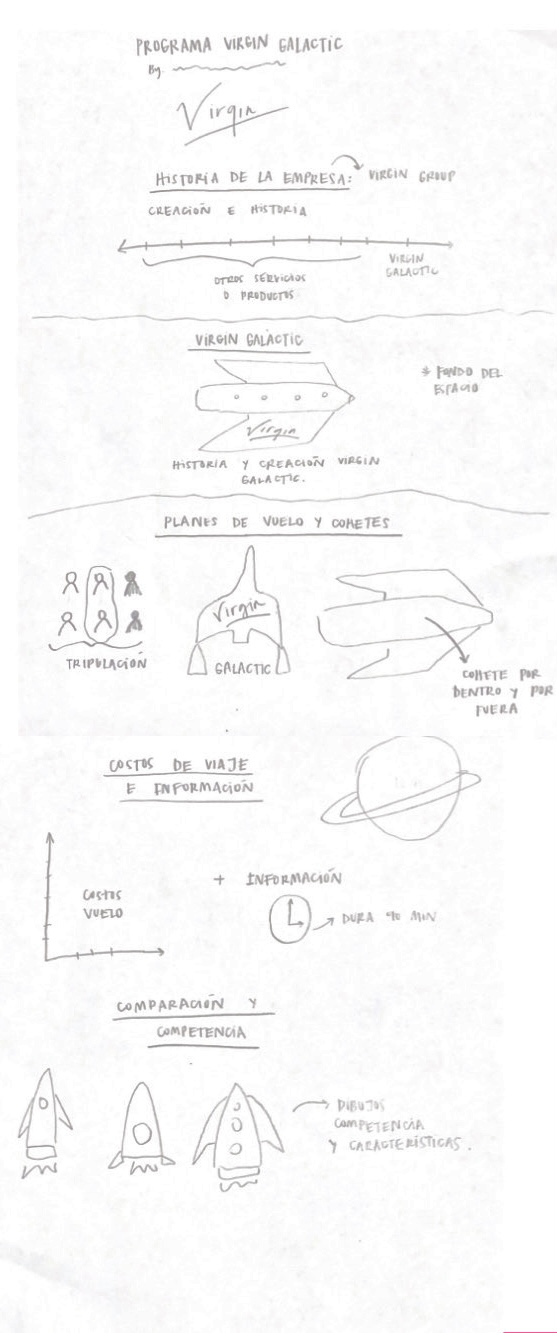 PROGRAMA VIRGIN GALACTIC
By.
Virgin
HISTORIA DE LA EMPRESA: VIRGIN GROUP
CREACIÓN E HISTORIA
VIRGIN
GALACTIC
OTROS SERVICIOS
O PRODUCTOS
VIRGIN GALACTIC
* FONDO DEL
ESPACIO
Virgin
HISTORIA Y CREACIÓN VIRGIN
GALACTIC.
PLANES DE VUELO Y COHETES
Virgin
GALACTIC
TRIPULACIÓN
COHETE POR
DENTRO Y POR
FUERA
COSTOS DE VIAJE
E INFORMACIÓN
COSTOS
VUELO
+ INFORMACIÓN
DURA 90 MIN
COMPARACIÓN Y
COMPETENCIA
DIBUJOS
COMPETENCIA
Y CARACTERÍSTICAS.